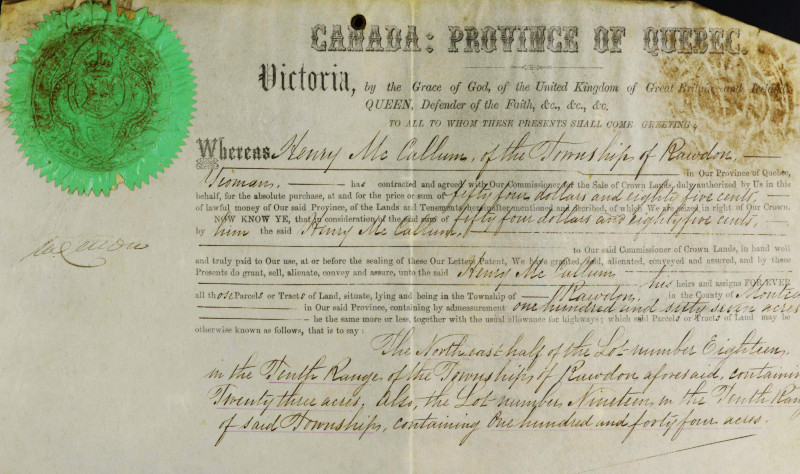 CANADA: PROVINCE OF QUEBEC.
Victoria, by the Grace of God, of the United Kingdom of Great Britain and Ireland,
QUEEN, Defender of the Faith, &c., &c., &c.
TO ALL TO WHOM THESE PRESENTS SHALL COME GREETING:
Whereas Henry Mc Callum, of the Township of Rawdon,
in Our Province of Quebec,
Yeoman, has contracted and agreed with Our Commissioner for the Sale of Crown Lands, duly authorized by Us in this
behalf, for the absolute purchase, at and for the price or sum of fifty four dollars and eighty five cents,
of lawful money of Our said Province, of the Lands and Tenements hereinafter mentioned and described, of which We are seized in right of Our Crown.
NOW KNOW YE, that in consideration of the said sum of fifty four dollars and eighty five cents,
by him the said Henry Mc Callum,
to Our said Commissioner of Crown Lands, in hand well
and truly paid to Our use, at or before the sealing of these Our Letters Patent, We have granted, sold, alienated, conveyed and assured, and by these
Presents do grant, sell, alienate, convey and assure, unto the said Henry Mc Callum
his heirs and assigns FOR EVER,
all those Parcels or Tracts of Land, situate, lying and being in the Township of Rawdon, in the County of
in Our said Province, containing by admeasurement one hundred and sixty seven acres
be the same more or less, together with the usual allowance for highways; which said Parcels or Tracts of Land may be
otherwise known as follows, that is to say:
The North east half of the Lot number Eighteen,
in the Tenth Range of the Township of Rawdon aforesaid,
Twenty three acres, Also, the Lot number Nineteen in the Tenth
of said Township, containing One hundred and forty four acres.